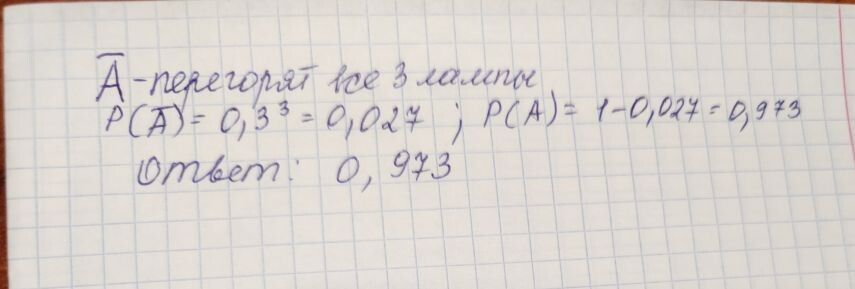 Ā - перегорят все 3 лампы
P(Ā) = 0,3³ = 0,027 ; P(A) = 1-0,027 = 0,973
Ответ: 0,973